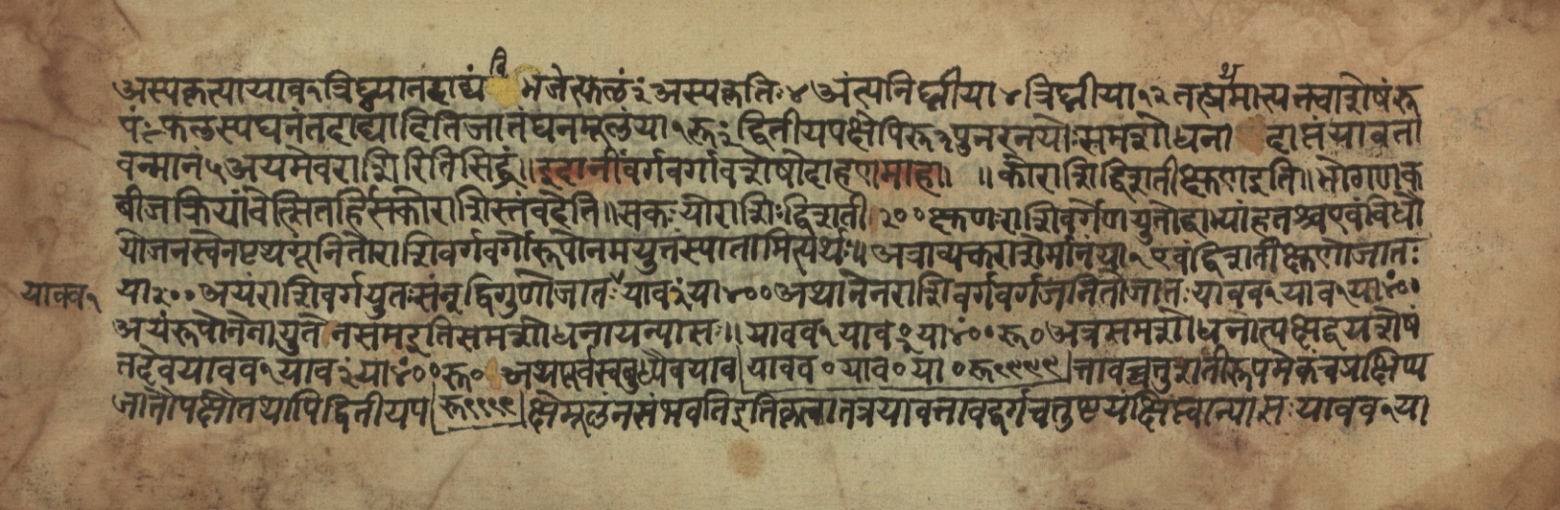 अस्पकृत्यायाव१त्रिघ्न्यातदाद्यं विभजेत्फलं२अस्पकृतिः४अंत्यनिघ्नीया४त्रिघ्नीया१२तत्प्रथमात्त्यक्त्वाशेषंरू
पं८फलस्पघनंतदाद्यादितिजातंघनमूलंया१रू२ंद्वितीयपक्षेपिरू३पुनरनयोःसमशोधना दाप्तंयावत्ता
वन्मानं५अयमेवराशिरितिसिद्धं॥इदानींवर्गवर्गावशेषोदाहरणमाह॥ ॥कोराशिर्द्विशतीक्षुण्णइति॥भोगणक
बीजक्रियांवेत्सितर्हिसकोराशिस्तंवदेति॥सकःयोराशिःद्विशती२००क्षुण्णःराशिवर्गेणयुतोद्वाभ्यांहतश्चएवंविधो
योजनस्तेनएष्टयद्यूनितोराशिवर्गवर्गोरूपोनमयुतंस्पातामित्यर्थः॥अत्राव्यक्तराशेर्मानंया१एवंद्विशतीक्षुण्णोजातः
या२००अयंराशिवर्गयुतःसंनूद्विगुणोजातःयाव२या४००अथानेनराशिवर्गवर्गऊनितोजातःयावव१याव२ंया४ं००
याकव१
अयंरूपोनेनायुतेनसमइतिसमशोधनायन्यासः॥यावव१याव२ंया४ं००रू०अत्रसमशोधनात्पक्षद्वयशेषं
तदेवयावव१याव२ंया४ं००रू० अथपूर्वस्वबुध्यैवयाव यावव०याव०या०रू९९९९ त्तावच्चतुःशतीरूपमेकंचप्रक्षिप्य
जातौपक्षौतथापिद्वितीयप रू९९९९ क्षेमूलंनसंभवतिइतिकृत्वातत्रयावत्तावद्वर्गचतुष्टयंक्षिप्त्वान्यासःयावव१या